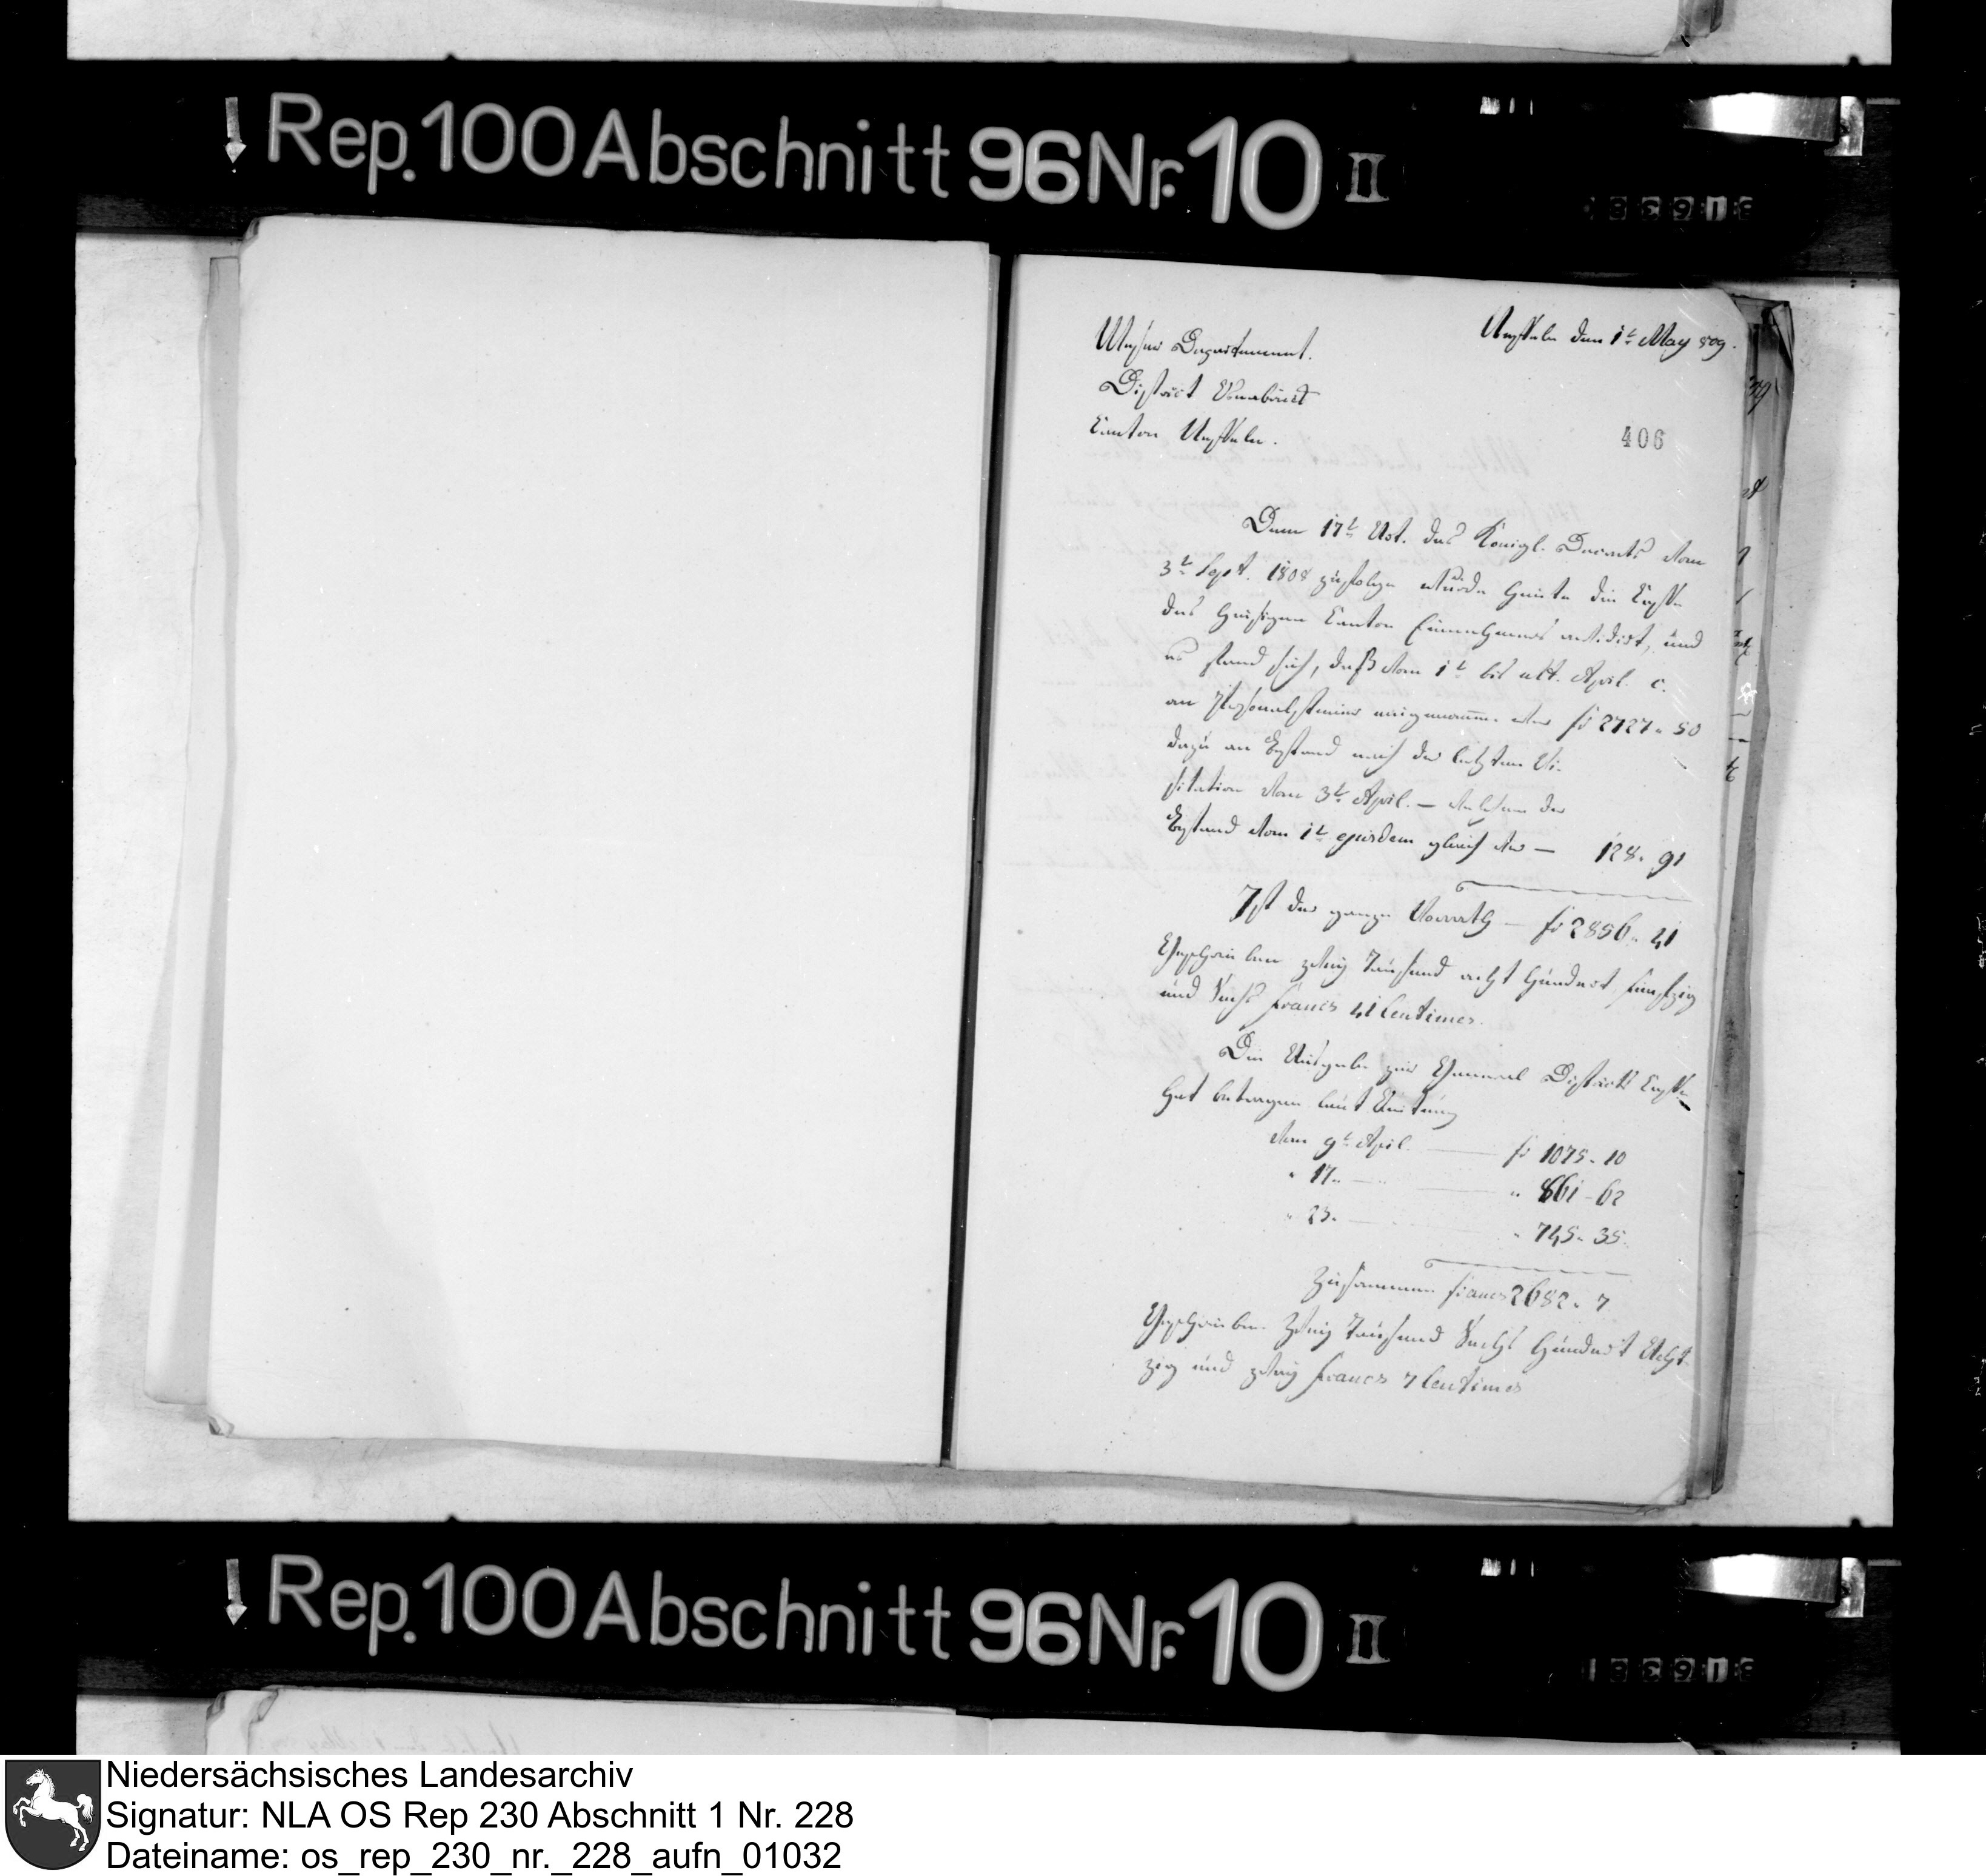 Rep. 100 Abschnitt 96 Nr. 10 II
Weser Departement.
District Osnabrück
Canton Ueffeln.
Ueffeln den 1t May 809.
406
Dem 17t Art. des Königl. Decrets vom
3t Sept. 1808 zufolge wurde heute die Casse
des hiesigen Canton Einnehmers revidirt, und
es fand sich, daß vom 1t bis ult. April. c.
an Personalsteuer eingenommen war fr 2727. 50
dazu an Bestand nach der letzten Vi-
sitation vom 3t April. — welchem der
Bestand vom 1t ejusdem gleich war — 128. 91
Ist der ganze Vorrath — fr 2856. 41
Geschrieben zwey Tausend acht Hundert funfzig
und Sechs francs 41 Centimes.
Die Ausgabe zur General Districts Casse
hat betragen laut Quitung
vom 9t April. — fr 1075. 10
" 17. — " 861 - 62
" 23. — " 745. 35.
Zusammen francs 2682. 7
Geschrieben Zwey Tausend Sechs Hundert Acht-
zig und zwey francs 7 Centimes
Rep. 100 Abschnitt 96 Nr. 10 II
Niedersächsisches Landesarchiv
Signatur: NLA OS Rep 230 Abschnitt 1 Nr. 228
Dateiname: os_rep_230_nr._228_aufn_01032